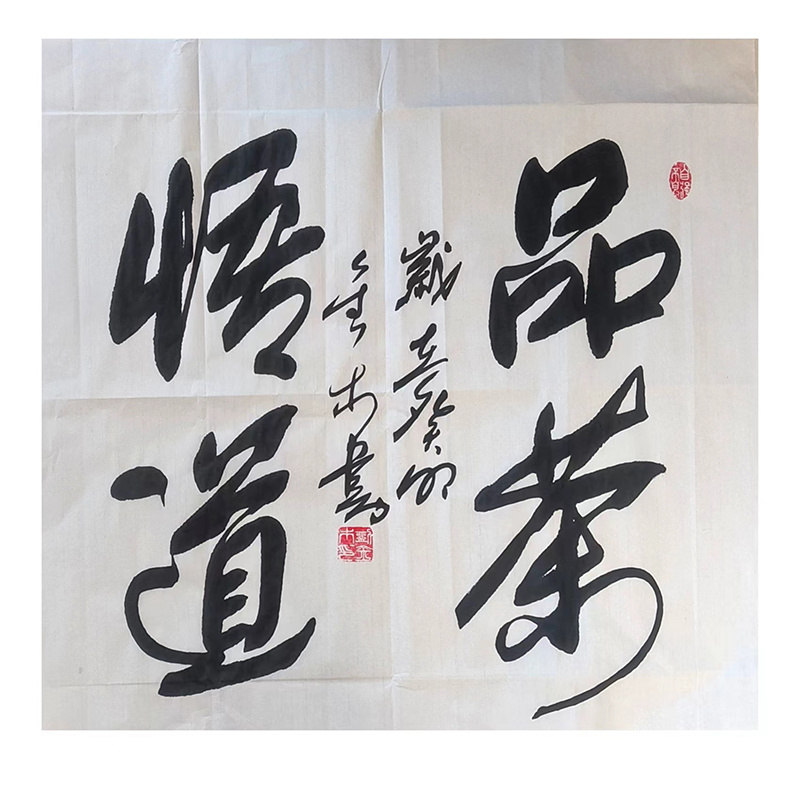 品茶
悟道
岁在癸卯
金木书